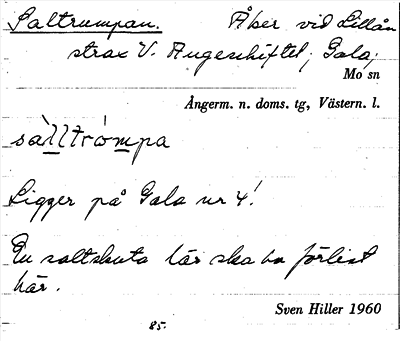 Saltrumpan. Åker vid Lillån
strax V. Ängeshiftet, Gala,
Mo sn
Ångerm. n. doms. tg, Västern. l.
sàlltrómpa
Ligger på Gala nr 4!
En saltskuta lär ska ha förlist
här.
Sven Hiller 1960
85.